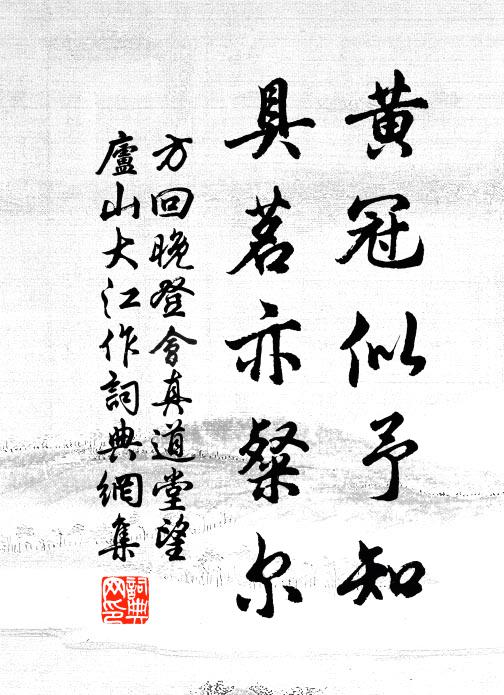 黃冠似予知
具茗亦粲尔
方回晚登會真道堂望
廬山大江作詞典網集
詞典
网印